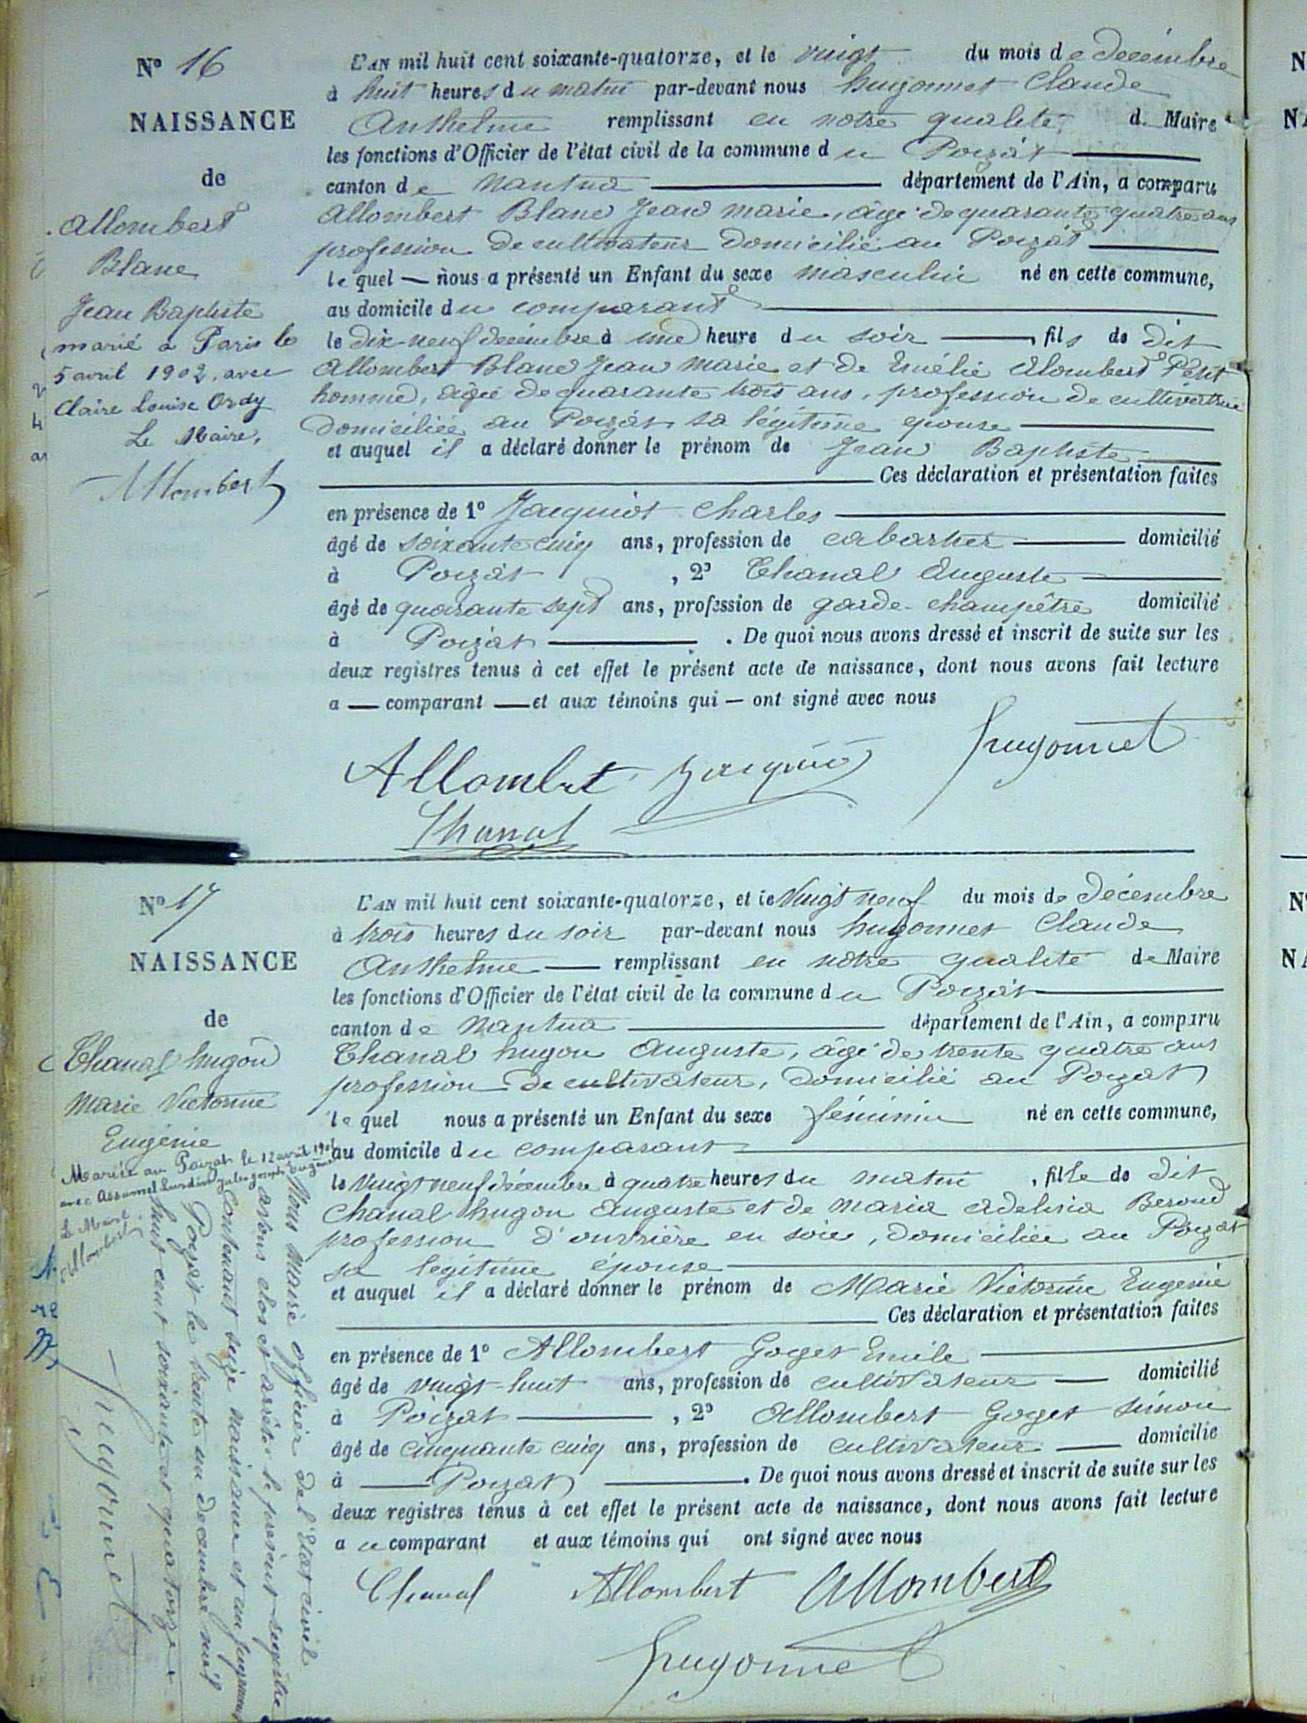 N° 16
NAISSANCE
de
Allombert
Blanc
Jean Baptiste
marié à Paris le
5 avril 1902, avec
Claire Louise Ordy
Le Maire,
Allombert
L'AN mil huit cent soixante-quatorze, et le vingt du mois de décembre
à huit heures du matin par-devant nous hugonnet Claude
Anthelme remplissant en notre qualité d Maire
les fonctions d'Officier de l'état civil de la commune du Poizat
canton de Nantua département de l'Ain, a comparu
Allombert Blanc Jean Marie, âgé de quarante quatre ans
profession de cultivateur domicilié au Poizat
lequel — nous a présenté un Enfant du sexe masculin né en cette commune,
au domicile du comparant
le dix-neuf décembre à une heure du soir fils de dit
Allombert Blanc Jean Marie et de Emélie Alombert Petit
homme, âgée de quarante trois ans, profession de cultivatrice
domiciliée au Poizat sa légitime epouse
et auquel il a déclaré donner le prénom de Jean Baptiste
Ces déclaration et présentation faites
en présence de 1° Jacquiot Charles
âgé de soixante cinq ans, profession de cabartier domicilié
à Poizat , 2° Chanal Auguste
âgé de quarante sept ans, profession de garde-champêtre domicilié
à Poizat . De quoi nous avons dressé et inscrit de suite sur les
deux registres tenus à cet effet le présent acte de naissance, dont nous avons fait lecture
a — comparant — et aux témoins qui — ont signé avec nous
hugonnet
Allombert Jacquiot
Chanal
N° 17
NAISSANCE
de
Chanal hugon
Marie Victorine
Eugénie
Mariée au Poizat le 12 avril
avec Assumel Lurdin Jules Joseph Eugène
Le Maire
Allombert
Nous Maire officier de l'Etat civil
avons clos et arrêté le présent registre
contenant seize naissances et un jugement
Poizat le trente un décembre mil
huit cent soixante et quatorze
hugonnet
L'AN mil huit cent soixante-quatorze, et le Vingt neuf du mois de décembre
à trois heures du soir par-devant nous hugonnet Claude
Anthelme — remplissant en notre qualité de Maire
les fonctions d'Officier de l'état civil de la commune du Poizat
canton de Nantua département de l'Ain, a comparu
Chanal hugon Auguste, âgé de trente quatre ans
profession de cultivateur, domicilié au Poizat
lequel nous a présenté un Enfant du sexe féminin né en cette commune,
au domicile du comparant
le Vingt neuf décembre à quatre heures du matin , fille de dit
Chanal hugon Auguste et de Maria Adelina Beroud
profession d'ouvrière en soie, domiciliée au Poizat
sa légitime épouse
et auquel il a déclaré donner le prénom de Marie Victorine Eugénie
Ces déclaration et présentation faites
en présence de 1° Allombert Goget Emile
âgé de vingt-huit ans, profession de cultivateur — domicilié
à Poizat , 2° Allombert Goget Simon
âgé de cinquante cinq ans, profession de cultivateur — domicilié
à — Poizat . De quoi nous avons dressé et inscrit de suite sur les
deux registres tenus à cet effet le présent acte de naissance, dont nous avons fait lecture
a u comparant et aux témoins qui ont signé avec nous
Chanal Allombert Allombert
hugonnet